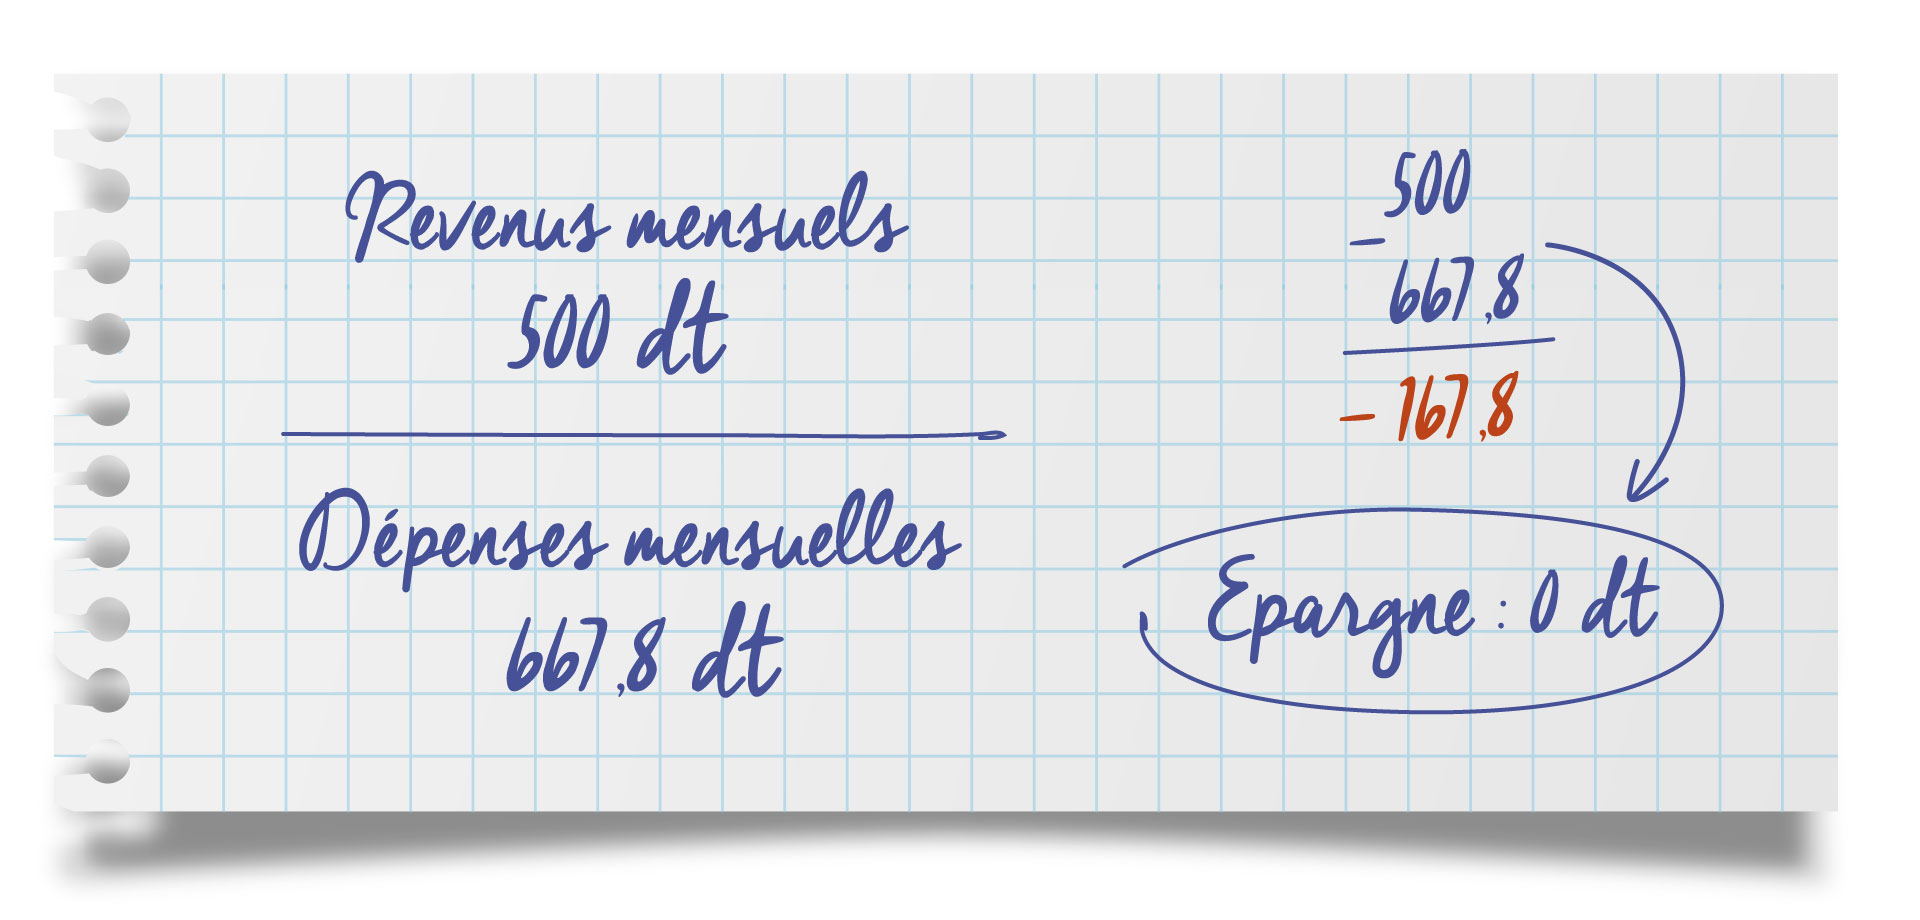 Revenus mensuels
500 dt
Dépenses mensuelles
667,8 dt
500
- 667,8
- 167,8
Epargne : 0 dt